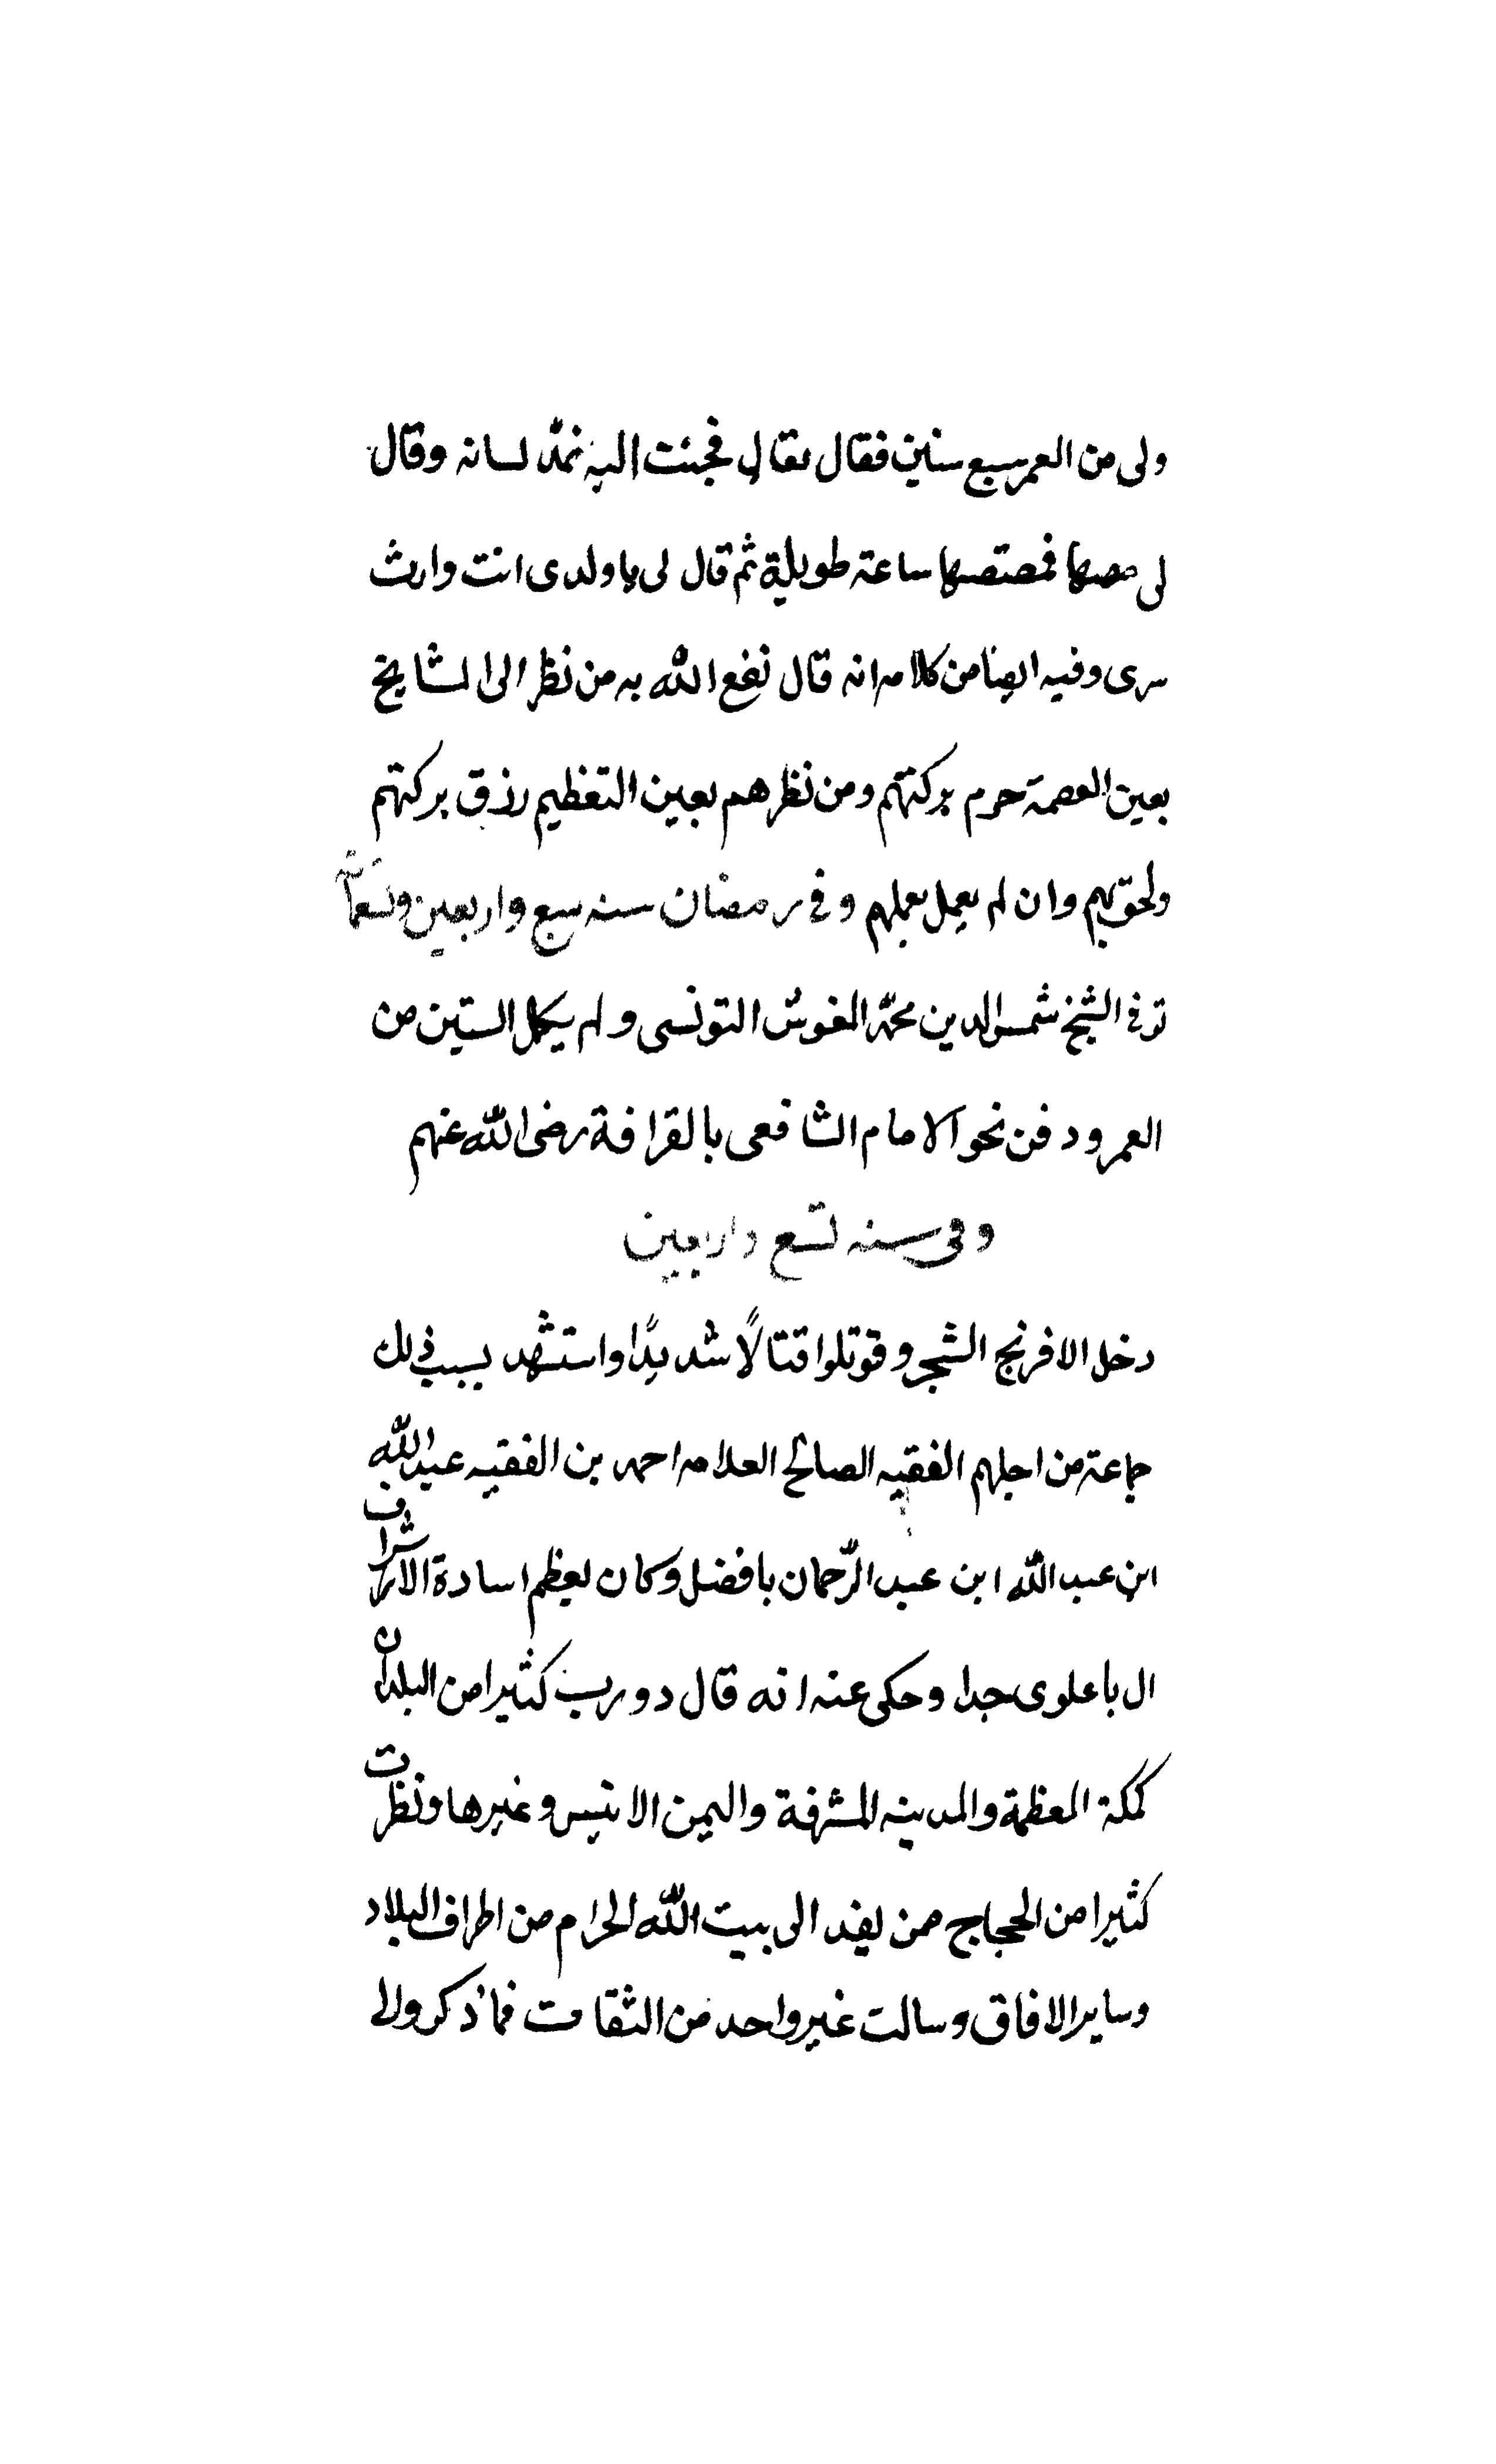 ولى من العمر سبع سنين فقال تعال فجئت اليه فمد لسانه وقال
لى مصها فمصتصها ساعة طويلة ثم قال لى يا ولدى انت وارث
سرى وفيه ايضا من كلامه انه قال نفع الله به من نظر الى المشايخ
بعين العصمة حرم بركتهم ومن نظرهم بعين التعظيم رزق بركتهم
ولحق بهم وان لم يعمل بعملهم وفى رمضان سنه سبع واربعين وتسعمائة
توفى الشيخ شمس الدين محمد المغوش التونسى ولم يكمل الستين من
العمر ودفن نحو الامام الشافعى بالقرافة رضى الله عنهم
وفى سنه تسع واربعين
دخل الافرنج الشحر وقوتلوا قتالًا شديدًا واستشهد بسبب ذلك
جماعة من اجلهم الفقيه الصالح العلامه احمد بن الفقيه عبدالله
ابن عبدالله ابن عبدالرّحمان بافضل وكان يعظم اسادة الاشراف
ال باعلوى جدا وحكى عنه انه قال دورت كثيرا من البلدان
كمكة المعظمة والمدينه المشرفة واليمن الانيس وغيرها ونظرت
كثيرا من الحجاج ممن يفد الى بيت الله الحرام من اطراف البلاد
وساير الافاق وسالت غير واحد من الثقات فما ذكروا لى